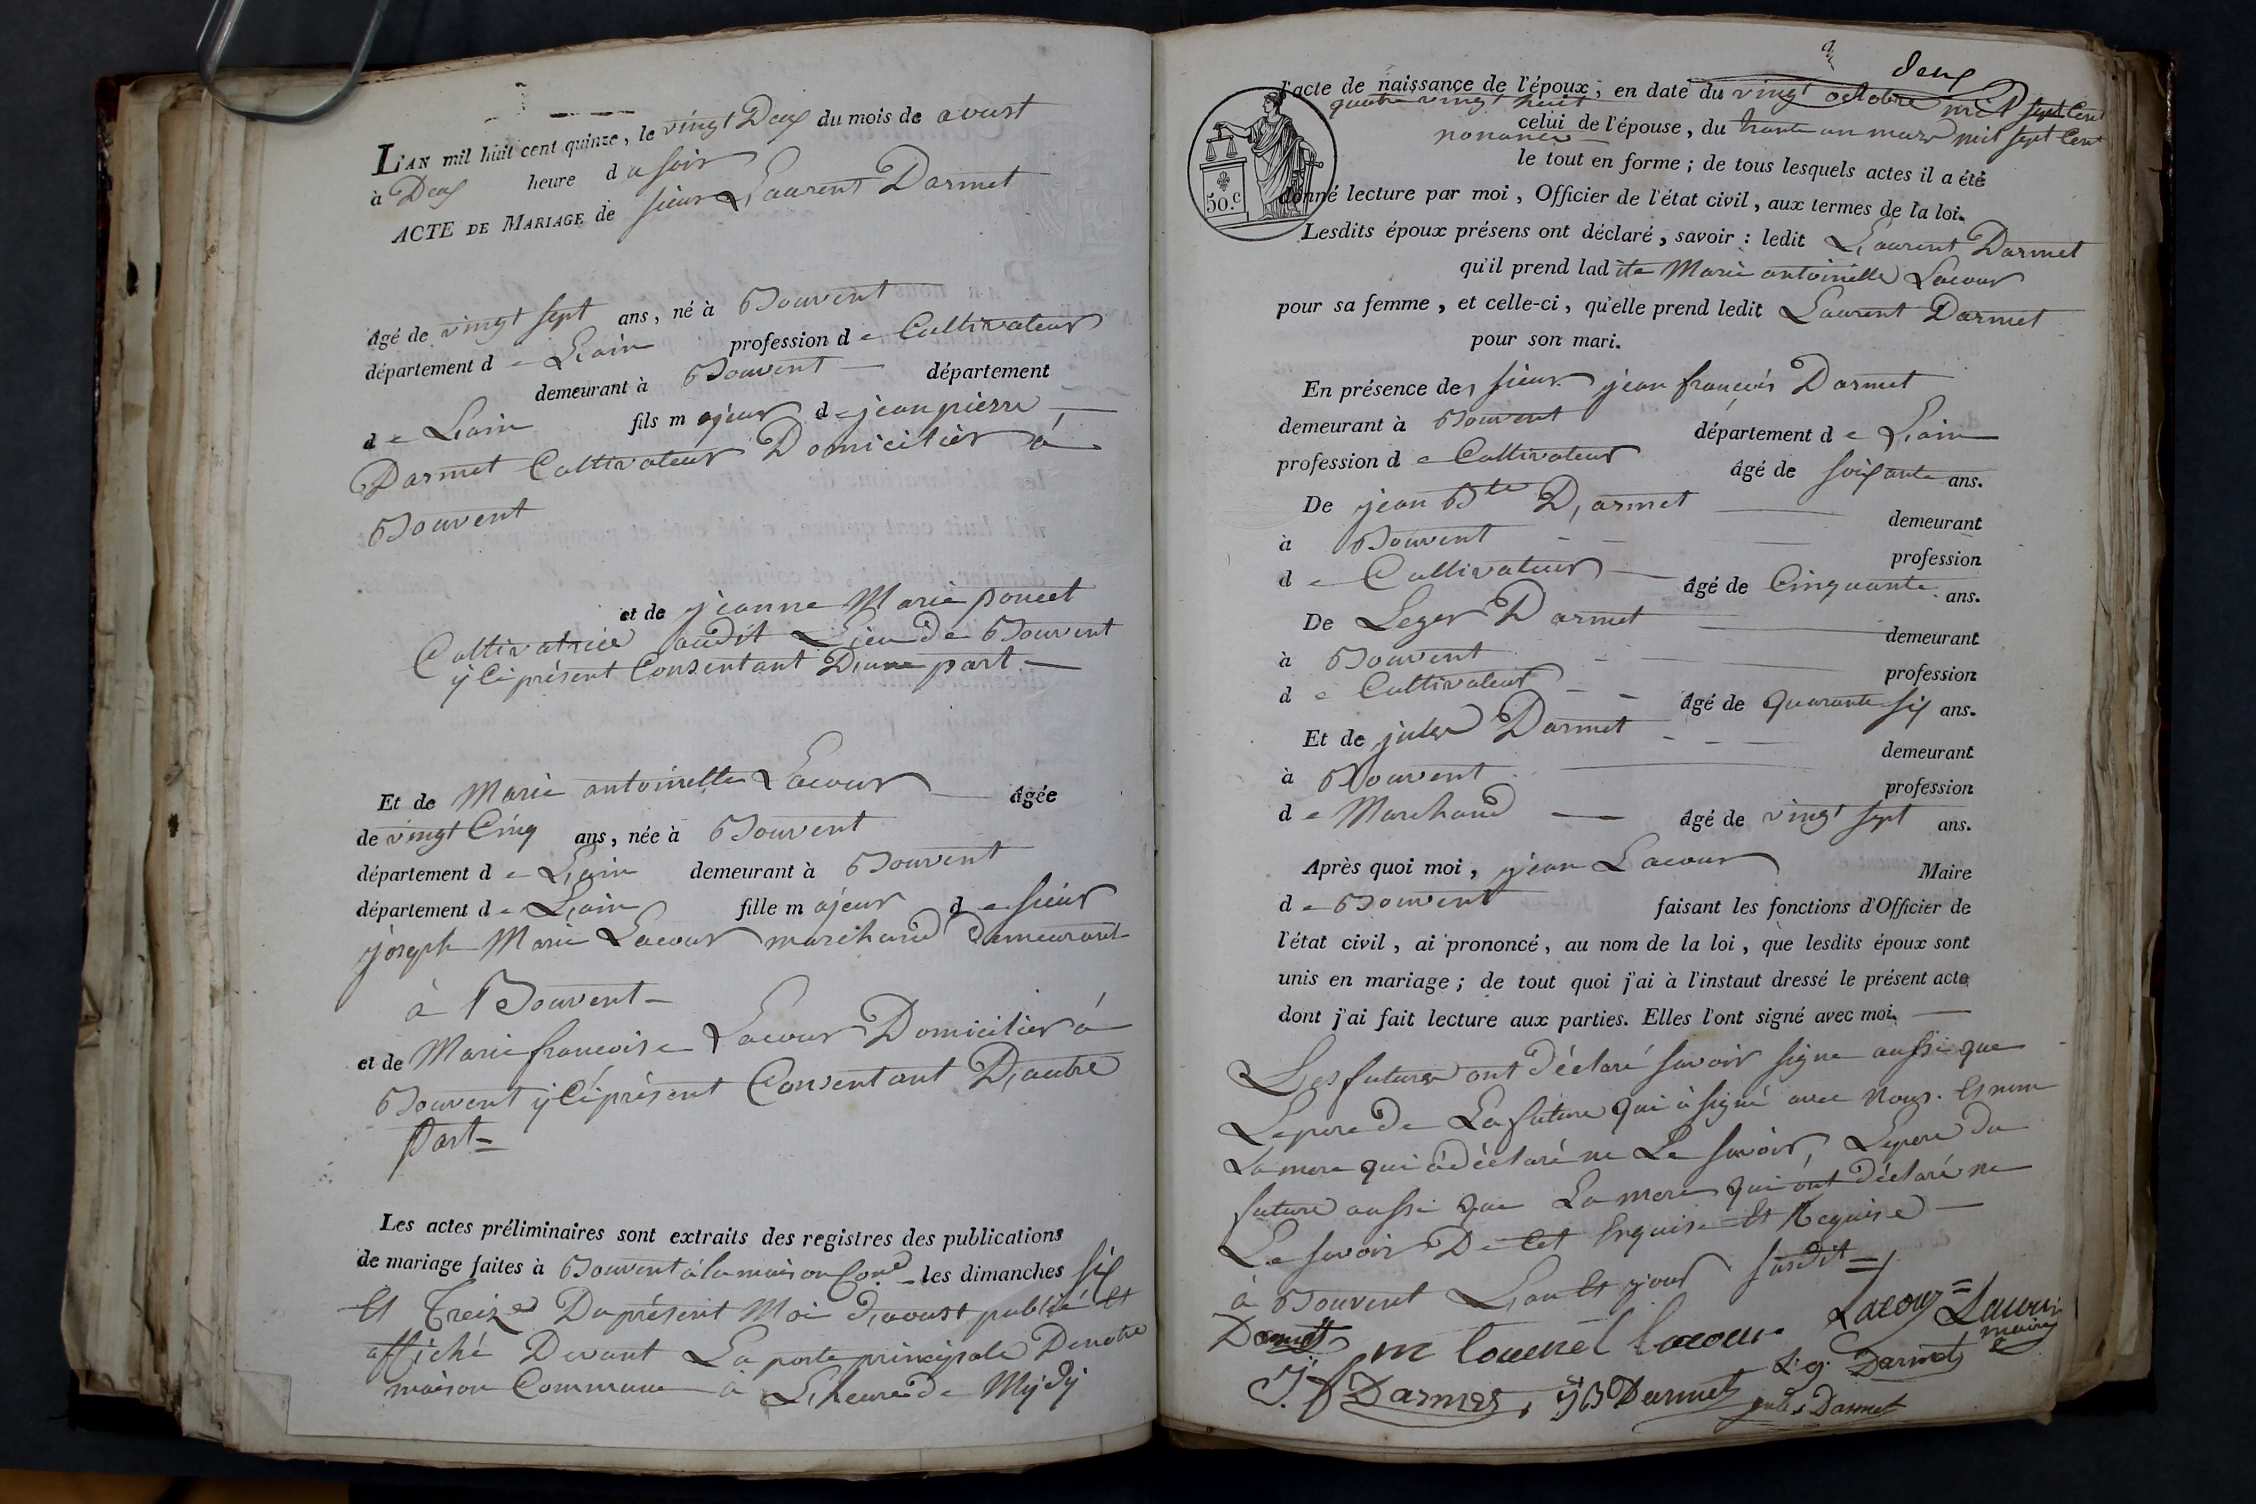 L'AN mil huit cent quinze, le vingt Deux du mois de avust
à Deux heure d u soir
ACTE DE MARIAGE de sieur Laurent Darmet
âgé de vingt sept ans, né à Bouvent
département d e L'ain profession d e Cultivateur
demeurant à Bouvent département
d e L'ain fils m ajeur d e jean pierre
Darmet Cultivateur Domicilier à
Bouvent
et de jeanne Marie poncet
Cultivatrice audit Lieu de Bouvent
y Ci présent Consentant D'une part
Et de Marie antoinette Lacour âgée
de vingt Cinq ans, née à Bouvent
département d e L'ain demeurant à Bouvent
département d e L'ain fille m ajeur d e sieur
joseph Marie Lacour marchand Demeurant
à Bouvent
et de Marie francoise Lacour Domicilier à
Bouvent y Ci présent Consentant D'autre
part
Les actes préliminaires sont extraits des registres des publications
de mariage faites à Bouvent à la maison Com.e les dimanches six
Et Treize Du présent Moi d'avust publié Et
affiché Devant La porte principale De notre
maison Commune à L'heure de Mydy
deux
l'acte de naissance de l'époux, en date du vingt octobre mil sept Cent
quatre vingt huit
celui de l'épouse, du trante un mars mil sept Cent
nonante
le tout en forme; de tous lesquels actes il a été
donné lecture par moi, Officier de l'état civil, aux termes de la loi.
50.c
Lesdits époux présens ont déclaré, savoir: ledit Laurent Darmet
qu'il prend lad ite Marie antoinette Lacour
pour sa femme, et celle-ci, qu'elle prend ledit Laurent Darmet
pour son mari.
En présence de, sieur jean françois Darmet
demeurant à Bouvent département d e L'ain
profession d e Cultivateur âgé de soixante ans.
De jean Bte Darmet demeurant
à Bouvent profession
d e Cultivateur âgé de Cinquante ans.
De Leger Darmet demeurant
à Bouvent profession
d e Cultivateur âgé de quarante six ans.
Et de jules Darmet demeurant
à Bouvent profession
d e Marchand âgé de vingt sept ans.
Après quoi moi, jean Lacour Maire
d e Bouvent faisant les fonctions d'Officier de
l'état civil, ai prononcé, au nom de la loi, que lesdits époux sont
unis en mariage; de tout quoi j'ai à l'instaut dressé le présent acte
dont j'ai fait lecture aux parties. Elles l'ont signé avec moi.
Les futures ont déclaré savoir signe aussi que
Le pere de La future qui à signé avec Nous. Et non
La mere qui à déclaré ne Le savoir, Le pere du
future aussi que La mere qui ont déclaré ne
Le savoir De Cet Enquise Et Requise
à Bouvent L'an Et jour susdit
Darmet m Lacour Lacour Lacour
maire
J. f Darmet, jB Darmet L.g. Darmet
jules Darmet